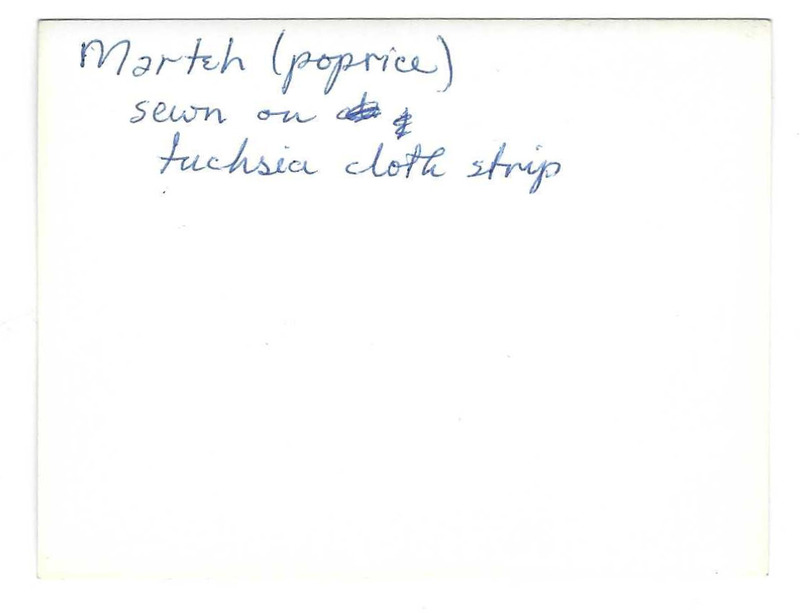 Marteh (poprice)
sewn on
fuchsia cloth strip